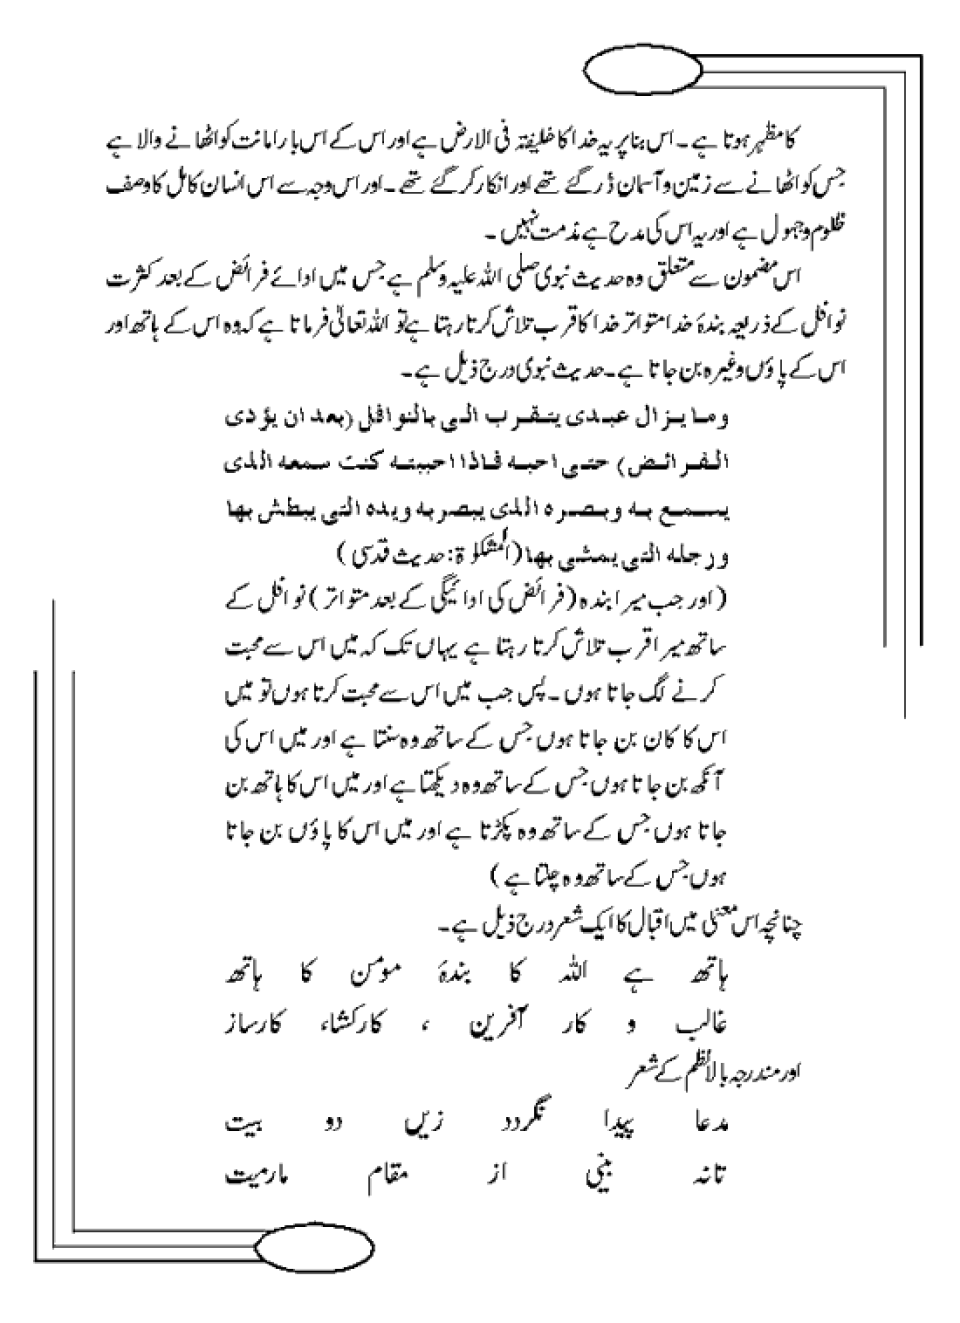 کا مظہر ہوتا ہے۔ اس بنا پر یہ خدا کا خلیفۃ فی الارض ہے اور اس کے اس بار امانت کو اٹھانے والا ہے
جس کو اٹھانے سے زمین و آسمان ڈر گئے تھے اور انکار کر گئے تھے۔ اور اس وجہ سے اس انسان کامل کا وصف
ظلوم و جہول ہے اور یہ اس کی مدح ہے مذمت نہیں۔
اس مضمون سے متعلق وہ حدیث نبوی صلی اللہ علیہ وسلم ہے جس میں ادائے فرائض کے بعد کثرت
نوافل کے ذریعہ بندۂ خدا متواتر خدا کا قرب تلاش کرتا رہتا ہے تو اللہ تعالیٰ فرماتا ہے کہ وہ اس کے ہاتھ اور
اس کے پاؤں وغیرہ بن جاتا ہے۔ حدیث نبوی درج ذیل ہے۔
وما يزال عبدى يتقرب الى بالنوافل (بعد ان يؤدى
الفرائض) حتى احبه فاذا احببته كنت سمعه الذى
يسمع به وبصره الذى يبصر به ويده التى يبطش بها
ورجله التى يمشى بها (المشکوٰۃ: حدیث قدسی)
(اور جب میرا بندہ (فرائض کی ادائیگی کے بعد متواتر) نوافل کے
ساتھ میرا قرب تلاش کرتا رہتا ہے یہاں تک کہ میں اس سے محبت
کرنے لگ جاتا ہوں۔ پس جب میں اس سے محبت کرتا ہوں تو میں
اس کا کان بن جاتا ہوں جس کے ساتھ وہ سنتا ہے اور میں اس کی
آنکھ بن جاتا ہوں جس کے ساتھ وہ دیکھتا ہے اور میں اس کا ہاتھ بن
جاتا ہوں جس کے ساتھ وہ پکڑتا ہے اور میں اس کا پاؤں بن جاتا
ہوں جس کے ساتھ وہ چلتا ہے)
چنانچہ اس معنی میں اقبال کا ایک شعر درج ذیل ہے۔
ہاتھ ہے اللہ کا بندۂ مومن کا ہاتھ
غالب و کار آفرین ، کارکشاء، کارساز
اور مندرجہ بالا نظم کے شعر
مدعا پیدا نگردد زیں دو بیت
تانہ بینی از مقام مارمیت